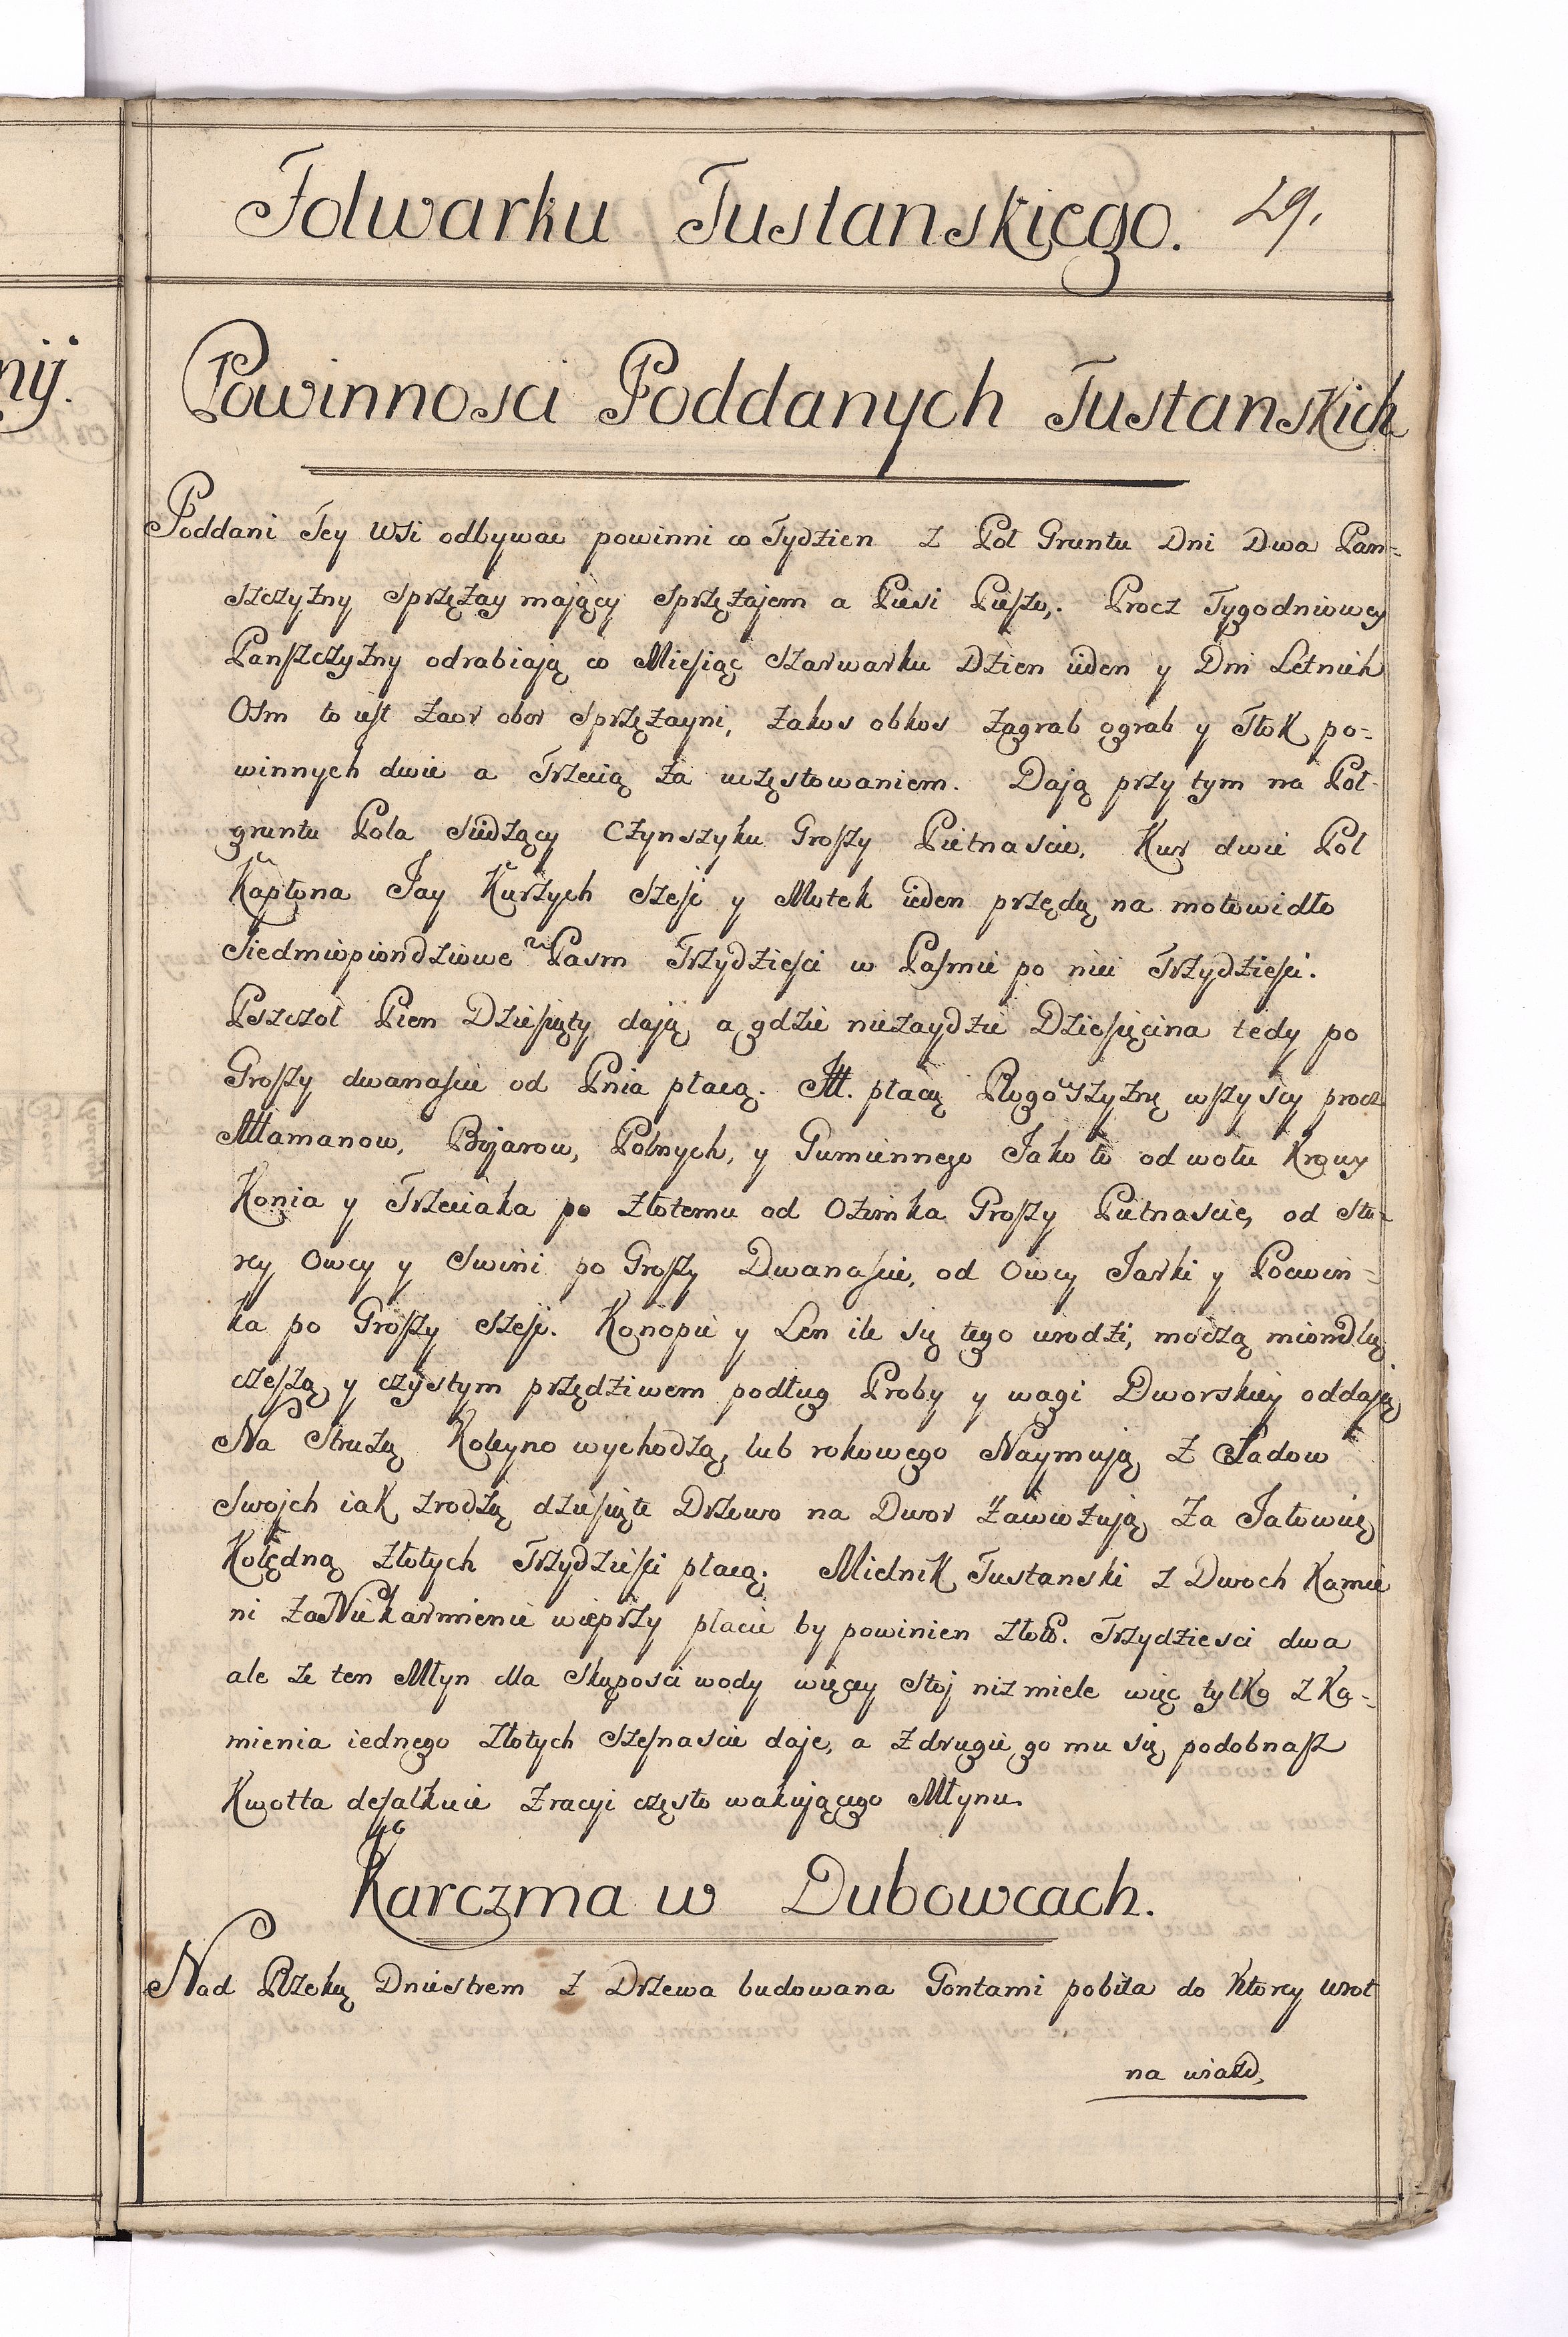 Folwarku Tustanskiego. 29.
nij.
Powinnosci Poddanych Tustanskich
Poddani Tey Wsi odbywac powinni co Tydzien z Poł Gruntu Dni Dwa Pan=
szczyzny Sprzężay mający Sprzężajem a Piesi Pieszo,. Procz Tygodniowey
Panszczyzny odrabiają co Miesiąc Szarwarku Dzien ieden y Dni Letnich
Osm to iest Zaor obor Sprzężayni, zakos obkos zagrab ograb y Tłok po=
winnych dwie a Trzecią za uczęstowaniem. Dają przy tym na Poł-
gruntu Pola Siedzący Czynszyku Groszy Pietnascie, Kur dwie Poł
Kapłona Jay Kurzych Szesc y Motek ieden przędzy na motowidło
Siedmiopiondziowe Pasm Trzydziesci w Pasmie po nici Trzydziesci.
Pszczoł Pien Dziesięty dają a gdzie niezaydzie Dziesięcina tedy po
Groszy dwanascie od Pnia płacą. It. płacą Rogowszyznę wszyscy procz
Attamanow, Boijarow, Polnych, y Gumiennego Jako to od wołu Krowy
Konia y Trzeciaka po złotemu od Ozimka Groszy Pietnascie, od Sta=
rey Owcy y Swini po Groszy Dwanascie, od Owcy Jarki y Pocwin=
ka po Groszy Szesc. Konopie y Len ile się tego urodzi, moczą miondlą
czeszą y czystym przędziwem podług Proby y wagi Dworskiey oddają
Na Strużą Koleyno wychodzą, lub rokowego Naymują z Sadow
Swojch iak zrodzą dziesięte Drzewo na Dwor Zawiozują Za Jałowicę
Kolędną Złotych Trzydziesci płacą. Mielnik Tustanski z Dwoch Kamie
ni za Niekarmienie wieprzy płacic by powinien Złoto. Trzydziesci dwa
ale ze ten Młyn dla Skąposci wody więcey Stoj niz miele więc tylko z Ka=
mienia iednego Złotych Szesnascie daje, a z drugiego mu się podobnasz
Kwotta defalkuie z racyi często wakującego Młynu.
Karczma w Dubowcach.
Nad Rzeką Dniestrem z Drzewa budowana Gontami pobita do Ktorey Wrot
na wiazd,